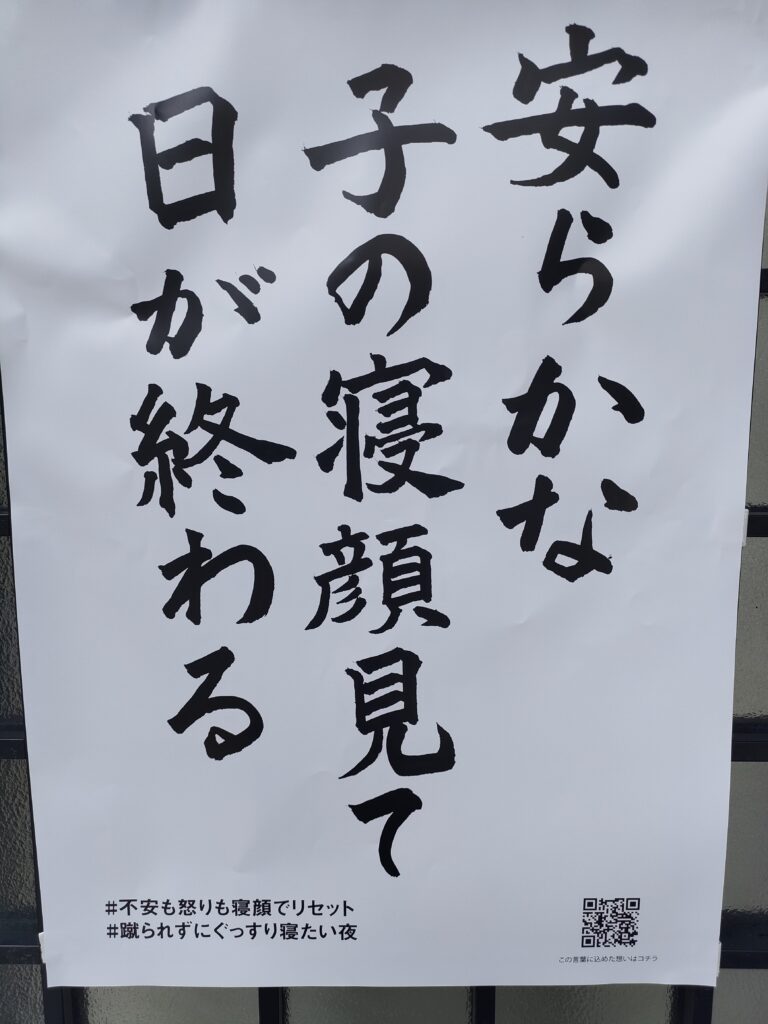 安らかな
子の寝顔見て
日が終わる
#不安も怒りも寝顔でリセット
#蹴られずにぐっすり寝たい夜
この言葉に込めた想いはコチラ